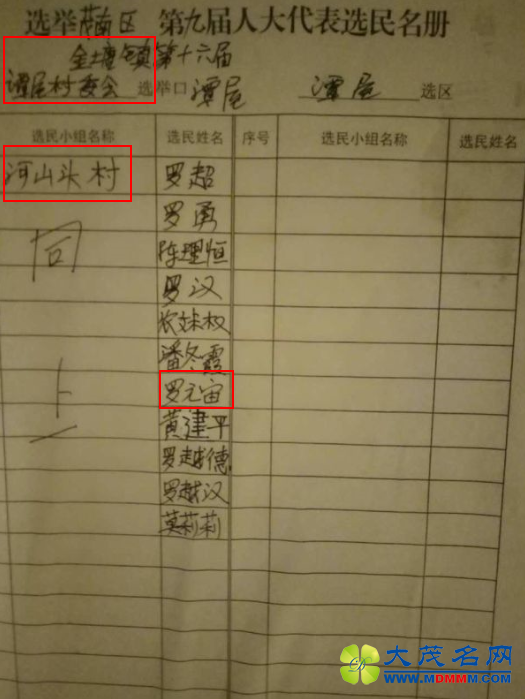 选举茂南区 第九届人大代表选民名册
金塘镇第十六届
潭尾村委会 选举口潭尾 潭尾 选区
选民小组名称 选民姓名 序号 选民小组名称 选民姓名
河山头村 罗超
罗勇
同 陈理恒
罗汉
农妹权
潘冬霞
上 罗元宙
黄建平
罗越德
罗越汉
莫莉莉
大茂名网
WWW.MDMMM.COM